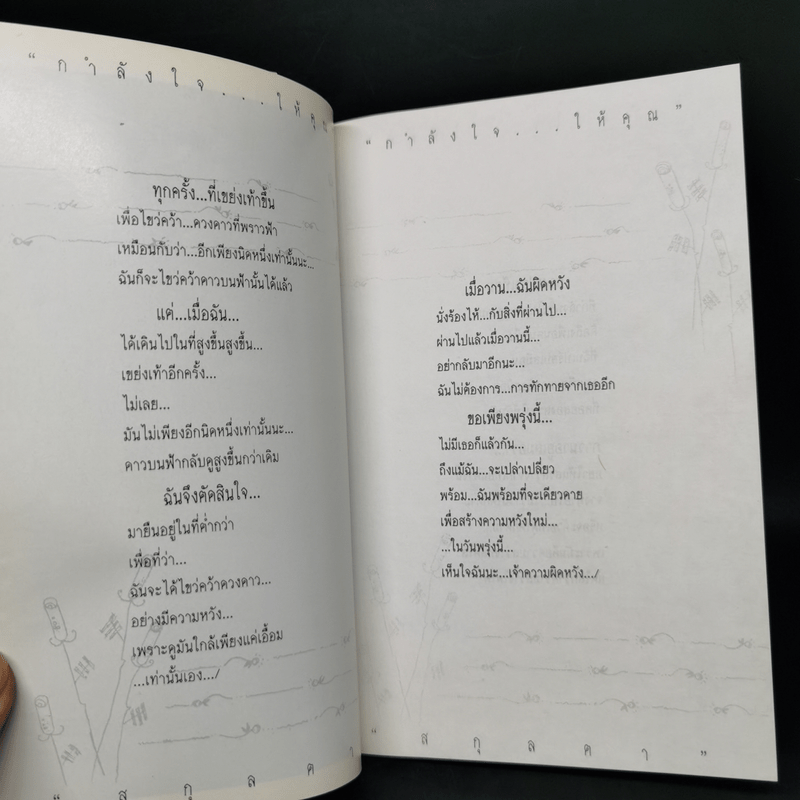 “กำลังใจ...ให้คุณ
ทุกครั้ง...ที่เขย่งเท้าขึ้น
เพื่อไขว่คว้า...ดวงดาวที่พราวฟ้า
เหมือนกับว่า...อีกเพียงนิดหนึ่งเท่านั้นนะ...
ฉันก็จะไขว่คว้าดาวบนฟ้านั้นได้แล้ว
แค่...เมื่อฉัน...
ได้เดินไปในที่สูงขึ้นสูงขึ้น...
เขย่งเท้าอีกครั้ง...
ไม่เลย...
มันไม่เพียงอีกนิดหนึ่งเท่านั้นนะ...
ดาวบนฟ้ากลับดูสูงขึ้นกว่าเดิม
ฉันจึงตัดสินใจ...
มายืนอยู่ในที่ต่ำกว่า
เพื่อที่ว่า...
ฉันจะได้ไขว่คว้าดวงดาว...
อย่างมีความหวัง...
เพราะดูมันใกล้เพียงแค่เอื้อม
...เท่านั้นเอง.../
“สกุลดา
“กำลังใจ...ให้คุณ”
เมื่อวาน...ฉันผิดหวัง
นั่งร้องไห้...กับสิ่งที่ผ่านไป...
ผ่านไปแล้วเมื่อวานนี้...
อย่ากลับมาอีกนะ...
ฉันไม่ต้องการ...การทักทายจากเธออีก
ขอเพียงพรุ่งนี้...
ไม่มีเธอก็แล้วกัน...
ถึงแม้ฉัน...จะเปล่าเปลี่ยว
พร้อม...ฉันพร้อมที่จะเดียวดาย
เพื่อสร้างความหวังใหม่...
...ในวันพรุ่งนี้...
เห็นใจฉันนะ...เจ้าความผิดหวัง.../
“สกุลดา”